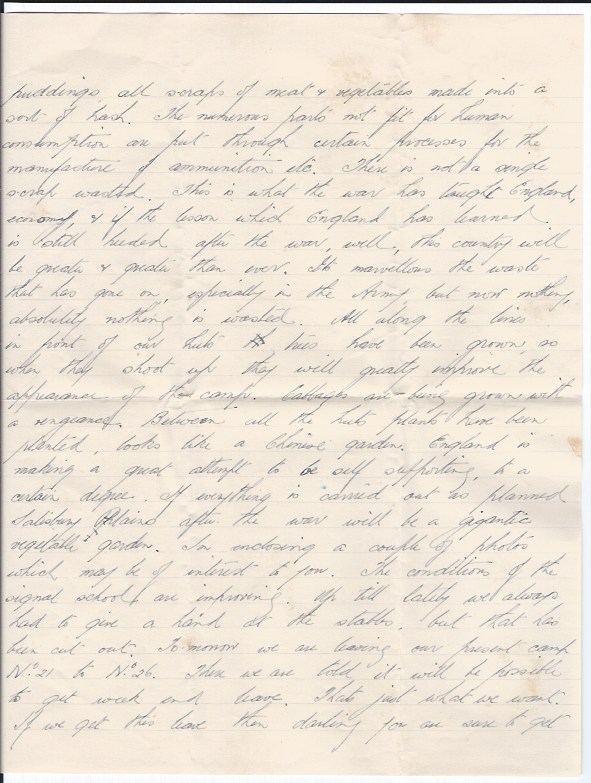 puddings, all scraps of meat & vegetables made into a
sort of hash. The numerous parts not fit for human
consumption are put through certain processes for the
manufacture of ammunition etc. There is not a single
scrap wasted. This is what the war has taught England,
economy, & if the lesson which England has learned
is still heeded after the war, well, this country will
be greater & greater than ever. Its marvellous the waste
that has gone on, especially in the Army, but now nothing,
absolutely nothing is wasted. All along the lines
in front of our huts trees have been grown, so
when they shoot up they will greatly improve the
appearance of the camp. Cabbages are being grown with
a vengeance. Between all the huts plants have been
planted, looks like a Chinese garden. England is
making a great attempt to be self supporting, to a
certain degree. If everything is carried out as planned
Salisbury Plains after the war will be a gigantic
vegetable garden. Im inclosing a couple of photos
which may be of interest to you. The conditions of the
signal school are improving. Up till lately we always
had to give a hand at the stables, but that has
been cut out. To-morrow we are leaving our present camp
No. 21 to No. 26. There we are told, it will be possible
to get week end leave. Thats just what we want.
If we get this leave then darling you are sure to get